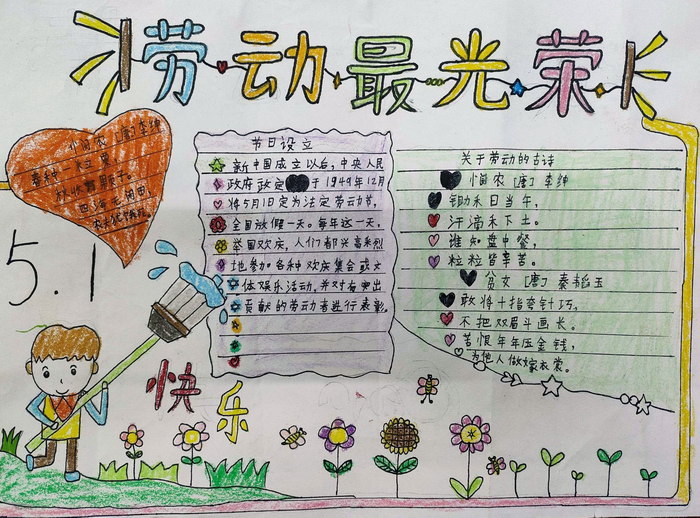 劳动最光荣
悯农 [唐] 李绅
春种一粒粟，
秋收万颗子。
四海无闲田，
农夫犹饿死。
5.1
快乐
节日设立
新中国成立以后，中央人民
政府政定于1949年12月
将5月1日定为法定劳动节，
全国放假一天。每年这一天，
举国欢庆，人们都兴高彩烈
地参加各种欢庆集会或文
体娱乐活动，并对有突出
贡献的劳动者进行表彰。
关于劳动的古诗
悯农 [唐] 李绅
锄禾日当午，
汗滴禾下土。
谁知盘中餐，
粒粒皆辛苦。
贫女 [唐] 秦韬玉
敢将十指夸针巧，
不把双眉斗画长。
苦恨年年压金钱，
为他人做嫁衣裳。